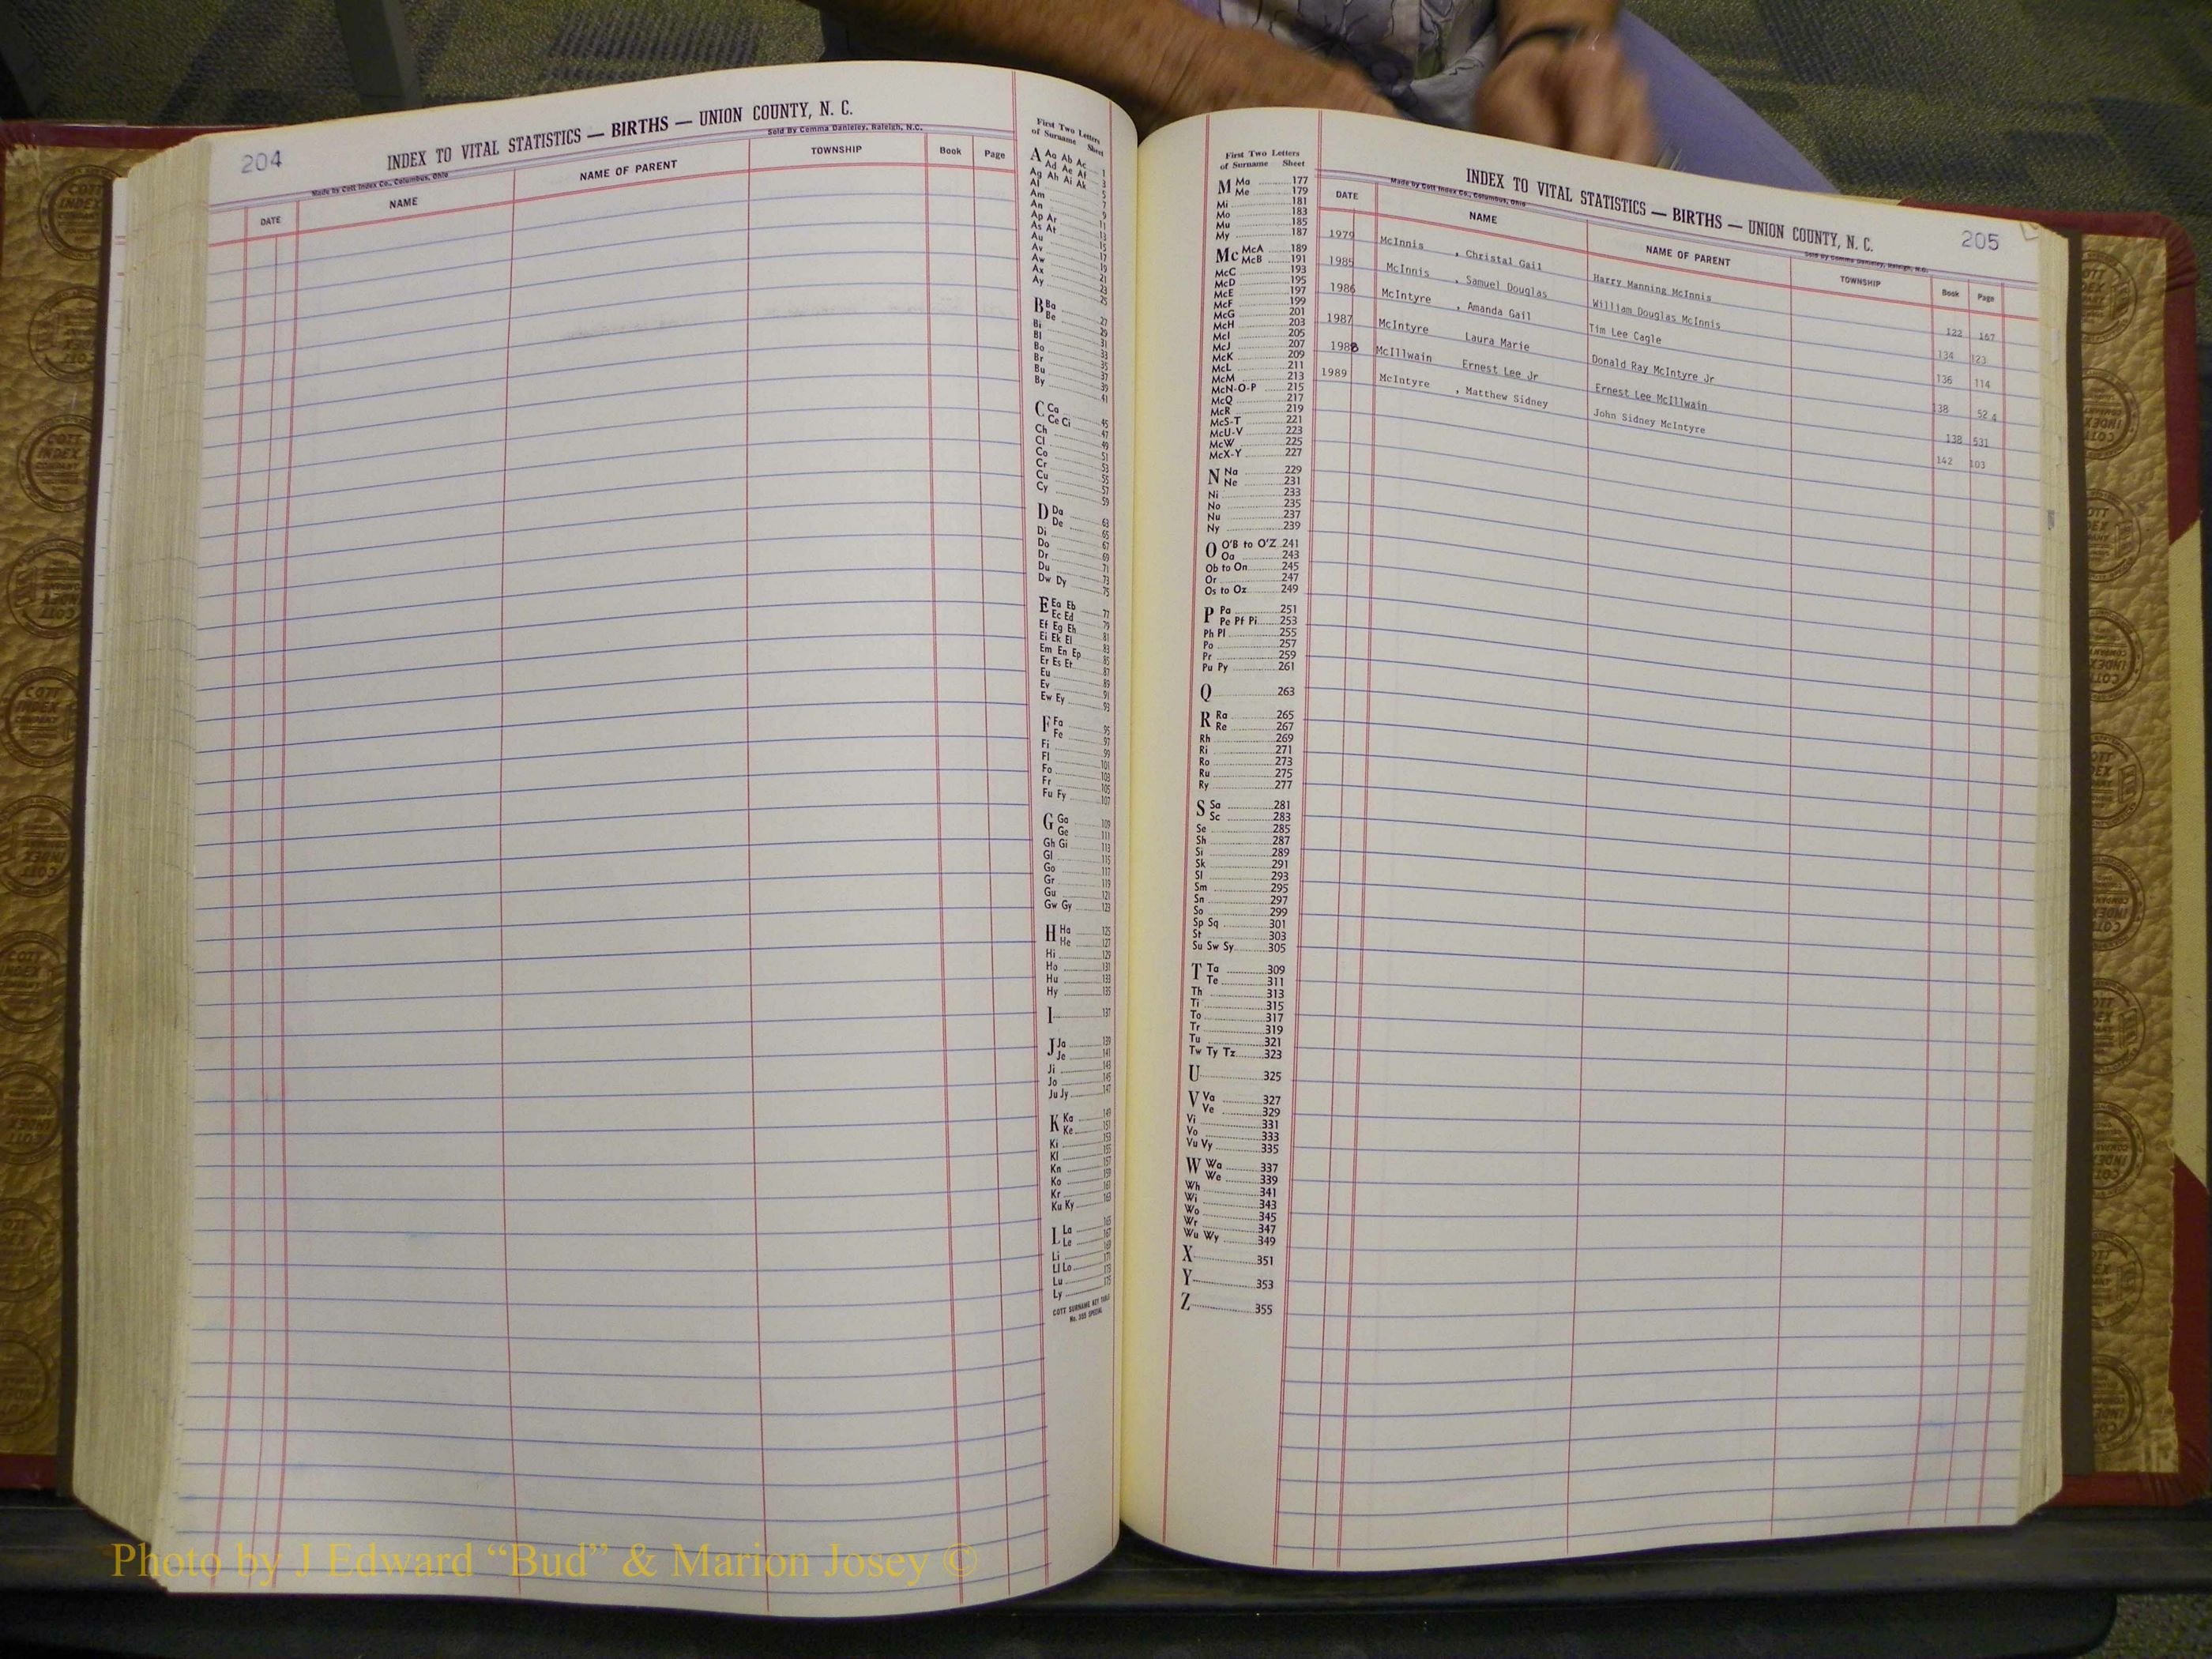 204
INDEX TO VITAL STATISTICS — BIRTHS — UNION COUNTY, N. C.
Made by Cott Index Co., Columbus, Ohio
Sold By Comma Danieley, Raleigh, N.C.
DATE NAME NAME OF PARENT TOWNSHIP Book Page
First Two Letters
of Surname Sheet
A Aa Ab Ac 1
Ad Ae Af 3
Ag Ah Ai Ak 5
Al 7
Am 9
An 11
Ap Ar 13
As At 15
Au 17
Av 19
Aw 21
Ax 23
Ay 25
B Ba 27
Be 29
Bi 31
Bl 33
Bo 35
Br 37
Bu 39
By 41
C Ca 45
Ce Ci 47
Ch 49
Cl 51
Co 53
Cr 55
Cu 57
Cy 59
D Da 63
De 65
Di 67
Do 69
Dr 71
Du 73
Dw Dy 75
E Ea Eb 77
Ec Ed 79
Ef Eg Eh 81
Ei Ek El 83
Em En Ep 85
Er Es Et 87
Eu 89
Ev 91
Ew Ey 93
F Fa 95
Fe 97
Fi 99
Fl 101
Fo 103
Fr 105
Fu Fy 107
G Ga 109
Ge 111
Gh Gi 113
Gl 115
Go 117
Gr 119
Gu 121
Gw Gy 123
H Ha 125
He 127
Hi 129
Ho 131
Hu 133
Hy 135
I 137
J Ja 139
Je 141
Ji 143
Jo 145
Ju Jy 147
K Ka 149
Ke 151
Ki 153
Kl 155
Kn 157
Ko 159
Kr 161
Ku Ky 163
L La 165
Le 167
Li 169
Ll Lo 171
Lu 173
Ly 175
COTT SURNAME KEY TABLE
No. 305 SPECIAL
First Two Letters
of Surname Sheet
M Ma 177
Me 179
Mi 181
Mo 183
Mu 185
My 187
Mc McA 189
McB 191
McC 193
McD 195
McE 197
McF 199
McG 201
McH 203
McI 205
McJ 207
McK 209
McL 211
McM 213
McN-O-P 215
McQ 217
McR 219
McS-T 221
McU-V 223
McW 225
McX-Y 227
N Na 229
Ne 231
Ni 233
No 235
Nu 237
Ny 239
O O'B to O'Z 241
Oa 243
Ob to On 245
Or 247
Os to Oz 249
P Pa 251
Pe Pf Pi 253
Ph Pl 255
Po 257
Pr 259
Pu Py 261
Q 263
R Ra 265
Re 267
Rh 269
Ri 271
Ro 273
Ru 275
Ry 277
S Sa 281
Sc 283
Se 285
Sh 287
Si 289
Sk 291
Sl 293
Sm 295
Sn 297
So 299
Sp Sq 301
St 303
Su Sw Sy 305
T Ta 309
Te 311
Th 313
Ti 315
To 317
Tr 319
Tu 321
Tw Ty Tz 323
U 325
V Va 327
Ve 329
Vi 331
Vo 333
Vu Vy 335
W Wa 337
We 339
Wh 341
Wi 343
Wo 345
Wr 347
Wu Wy 349
X 351
Y 353
Z 355
INDEX TO VITAL STATISTICS — BIRTHS — UNION COUNTY, N. C.
205
Made by Cott Index Co., Columbus, Ohio
Sold By Comma Danieley, Raleigh, N.C.
DATE NAME NAME OF PARENT TOWNSHIP Book Page
1979 McInnis , Christal Gail Harry Manning McInnis 122 167
1985 McInnis , Samuel Douglas William Douglas McInnis 134 123
1986 McIntyre , Amanda Gail Tim Lee Cagle 136 114
1987 McIntyre Laura Marie Donald Ray McIntyre Jr 138 524
1988 McIllwain Ernest Lee Jr Ernest Lee McIllwain 138 531
1989 McIntyre , Matthew Sidney John Sidney McIntyre 142 103
Photo by J Edward “Bud” & Marion Josey ©